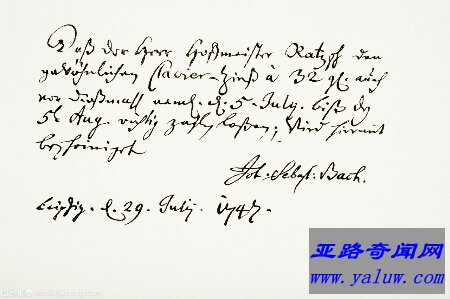 Daß der Herr Hoffmeister Ratzsch den
gewöhnlichen Clavier-Zinß à 32 gl. auch
vor dießmahl neml. d. 5. July. biß d.
5t. Aug. richtig zahlen laßen; Wird hiermit
bescheiniget
Joh: Sebast: Bach.
Leipzig. d. 29. Julij. 1747.
亚路奇闻网
www.yaluw.com